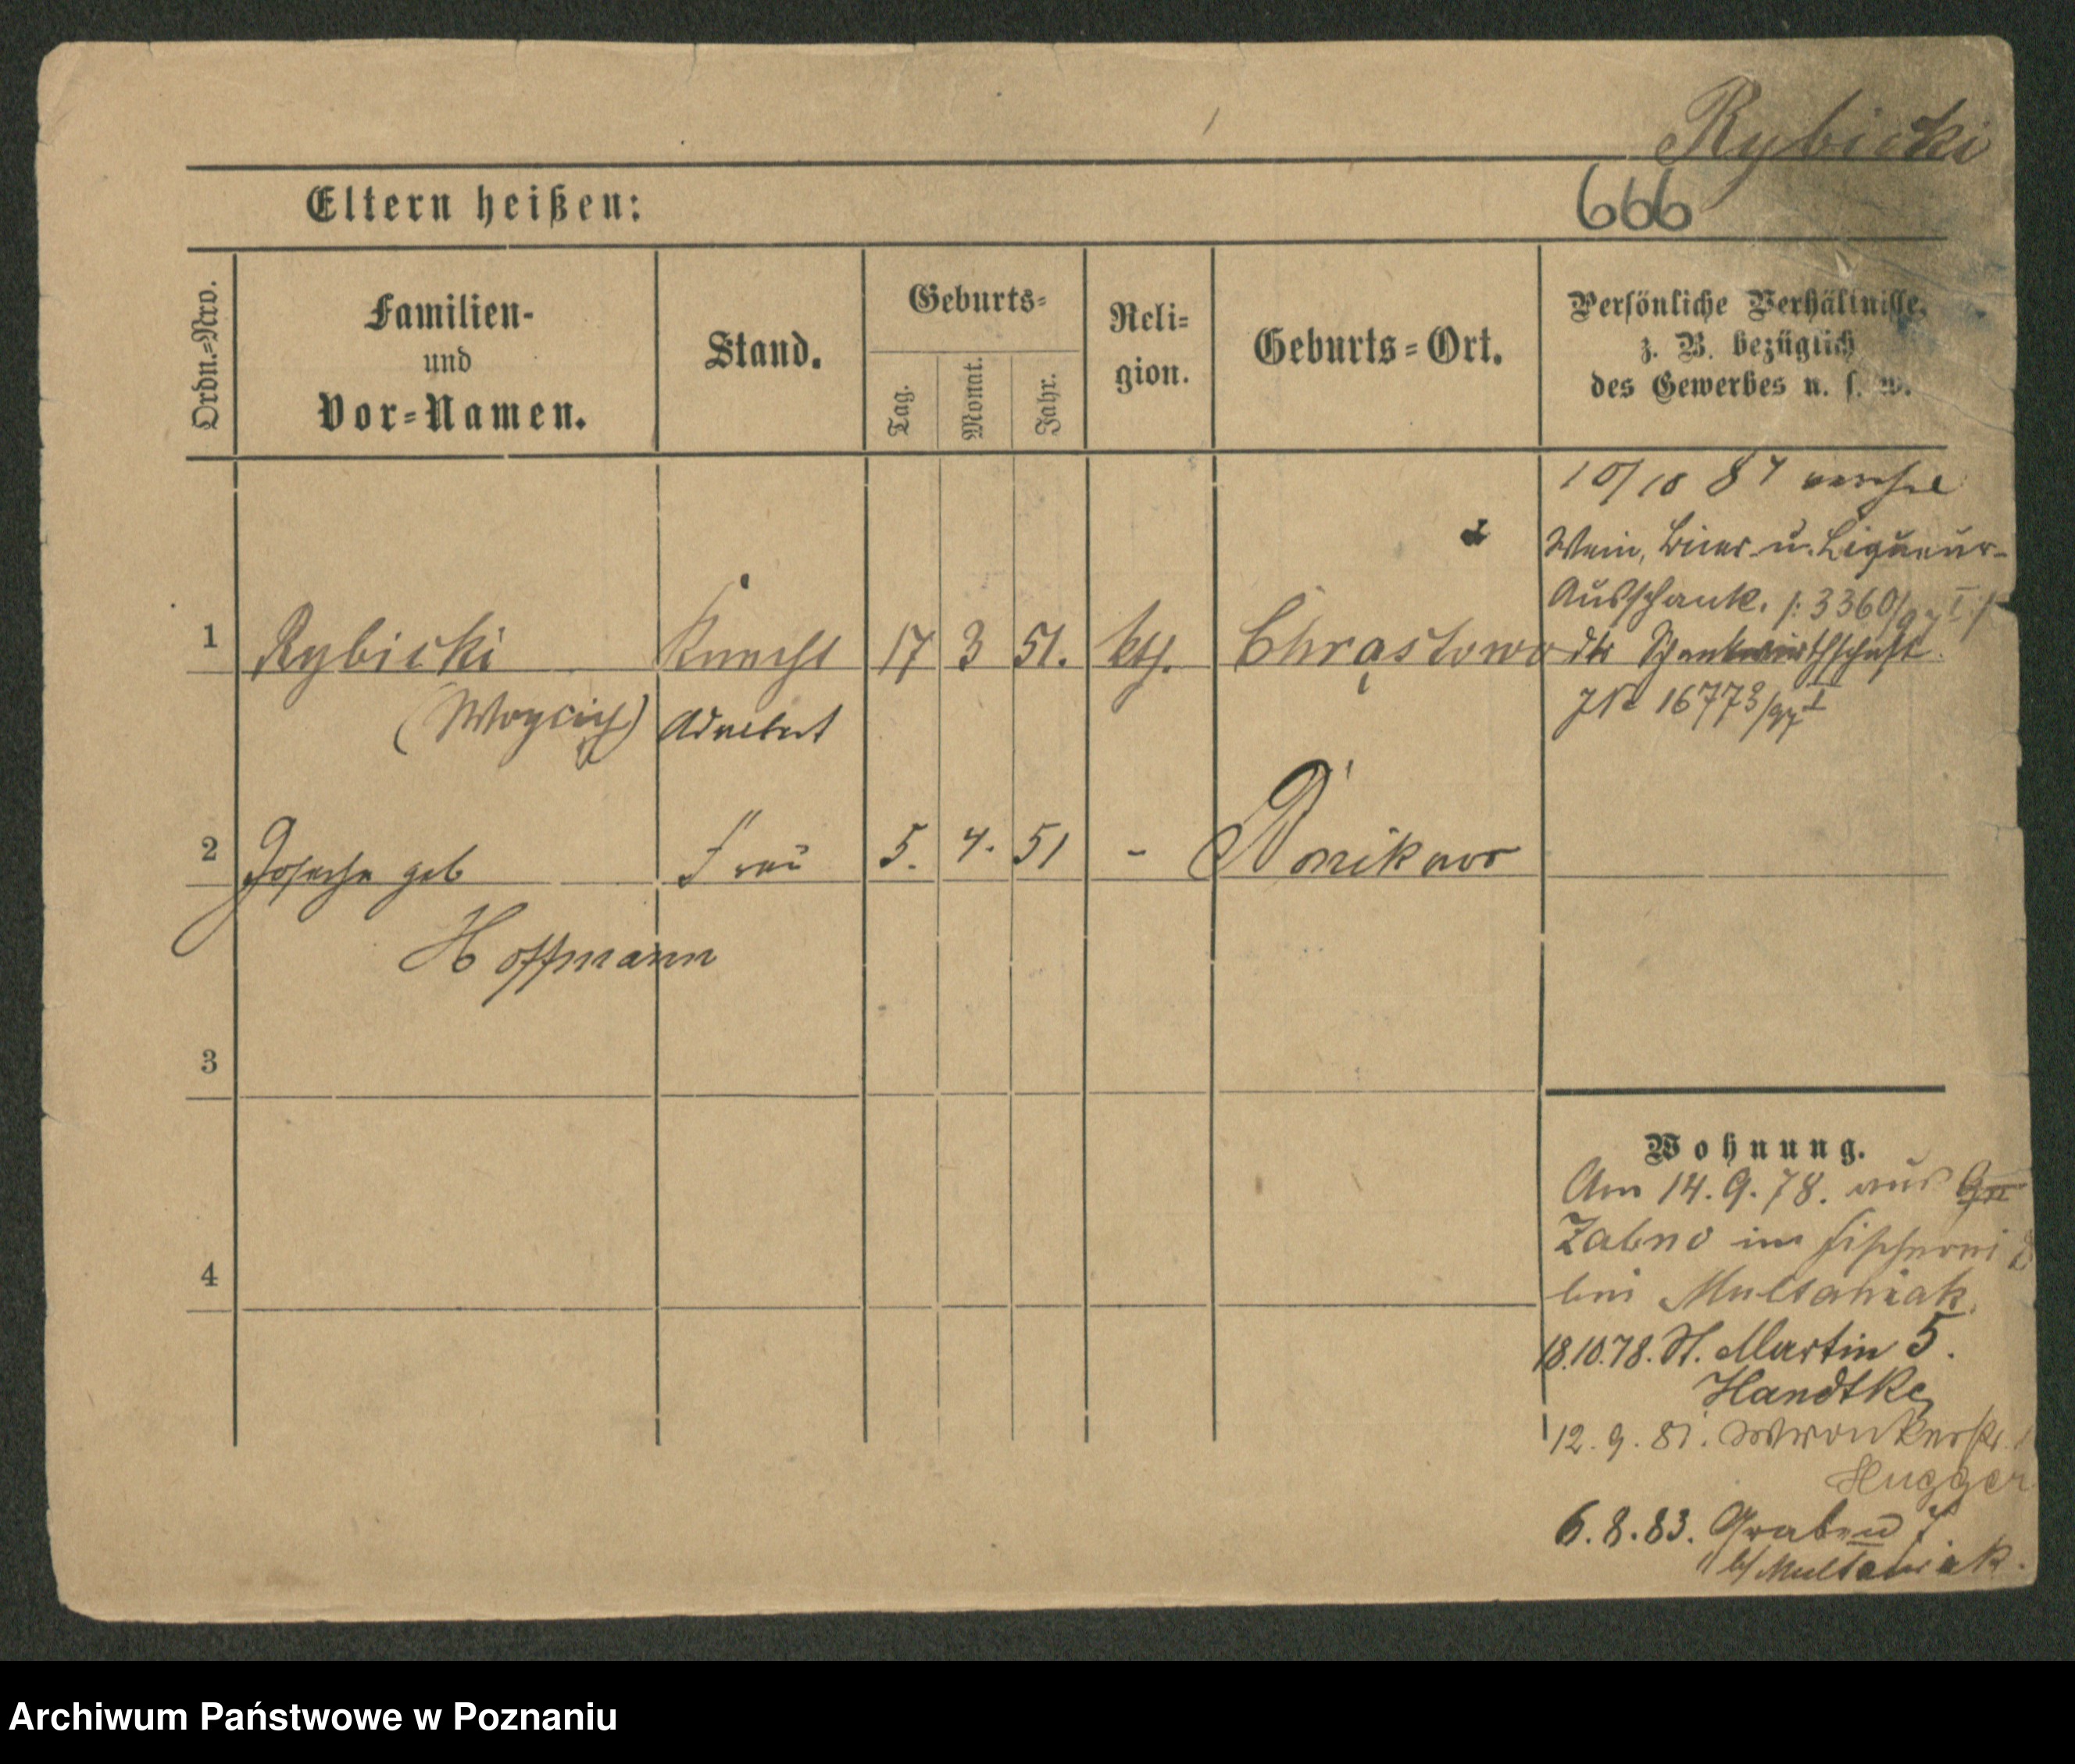 Rybicki
666
Eltern heißen:
Ordn.=Nro.
Familien-
und
Vor=Namen.
Stand.
Geburts=
Tag.
Monat.
Jahr.
Reli=
gion.
Geburts=Ort.
Persönliche Verhältnisse,
z. B. bezüglich
des Gewerbes u. s. w.
10/10 87
Wein, Bier u. Liqueur-
Ausschank. /: 3360/97 I :/
1 Rybicki Knecht 17 3 51. kth. Chrąstowo
dto Schankwirthschaft.
JN 16773/97 I
(Woyciech) Adalbert
2 Josepha geb Frau 5. 4. 51 -
Hoffmann
3
4
Wohnung.
Am 14. 9. 78. aus
Zabno in Fischerei
bei Multaniak.
18.10.78. St. Martin 5.
Handtke
12. 9. 81. Wronkerstr.
Hugger
6. 8. 83. Graben 7
b/ Multaniak.
Archiwum Państwowe w Poznaniu